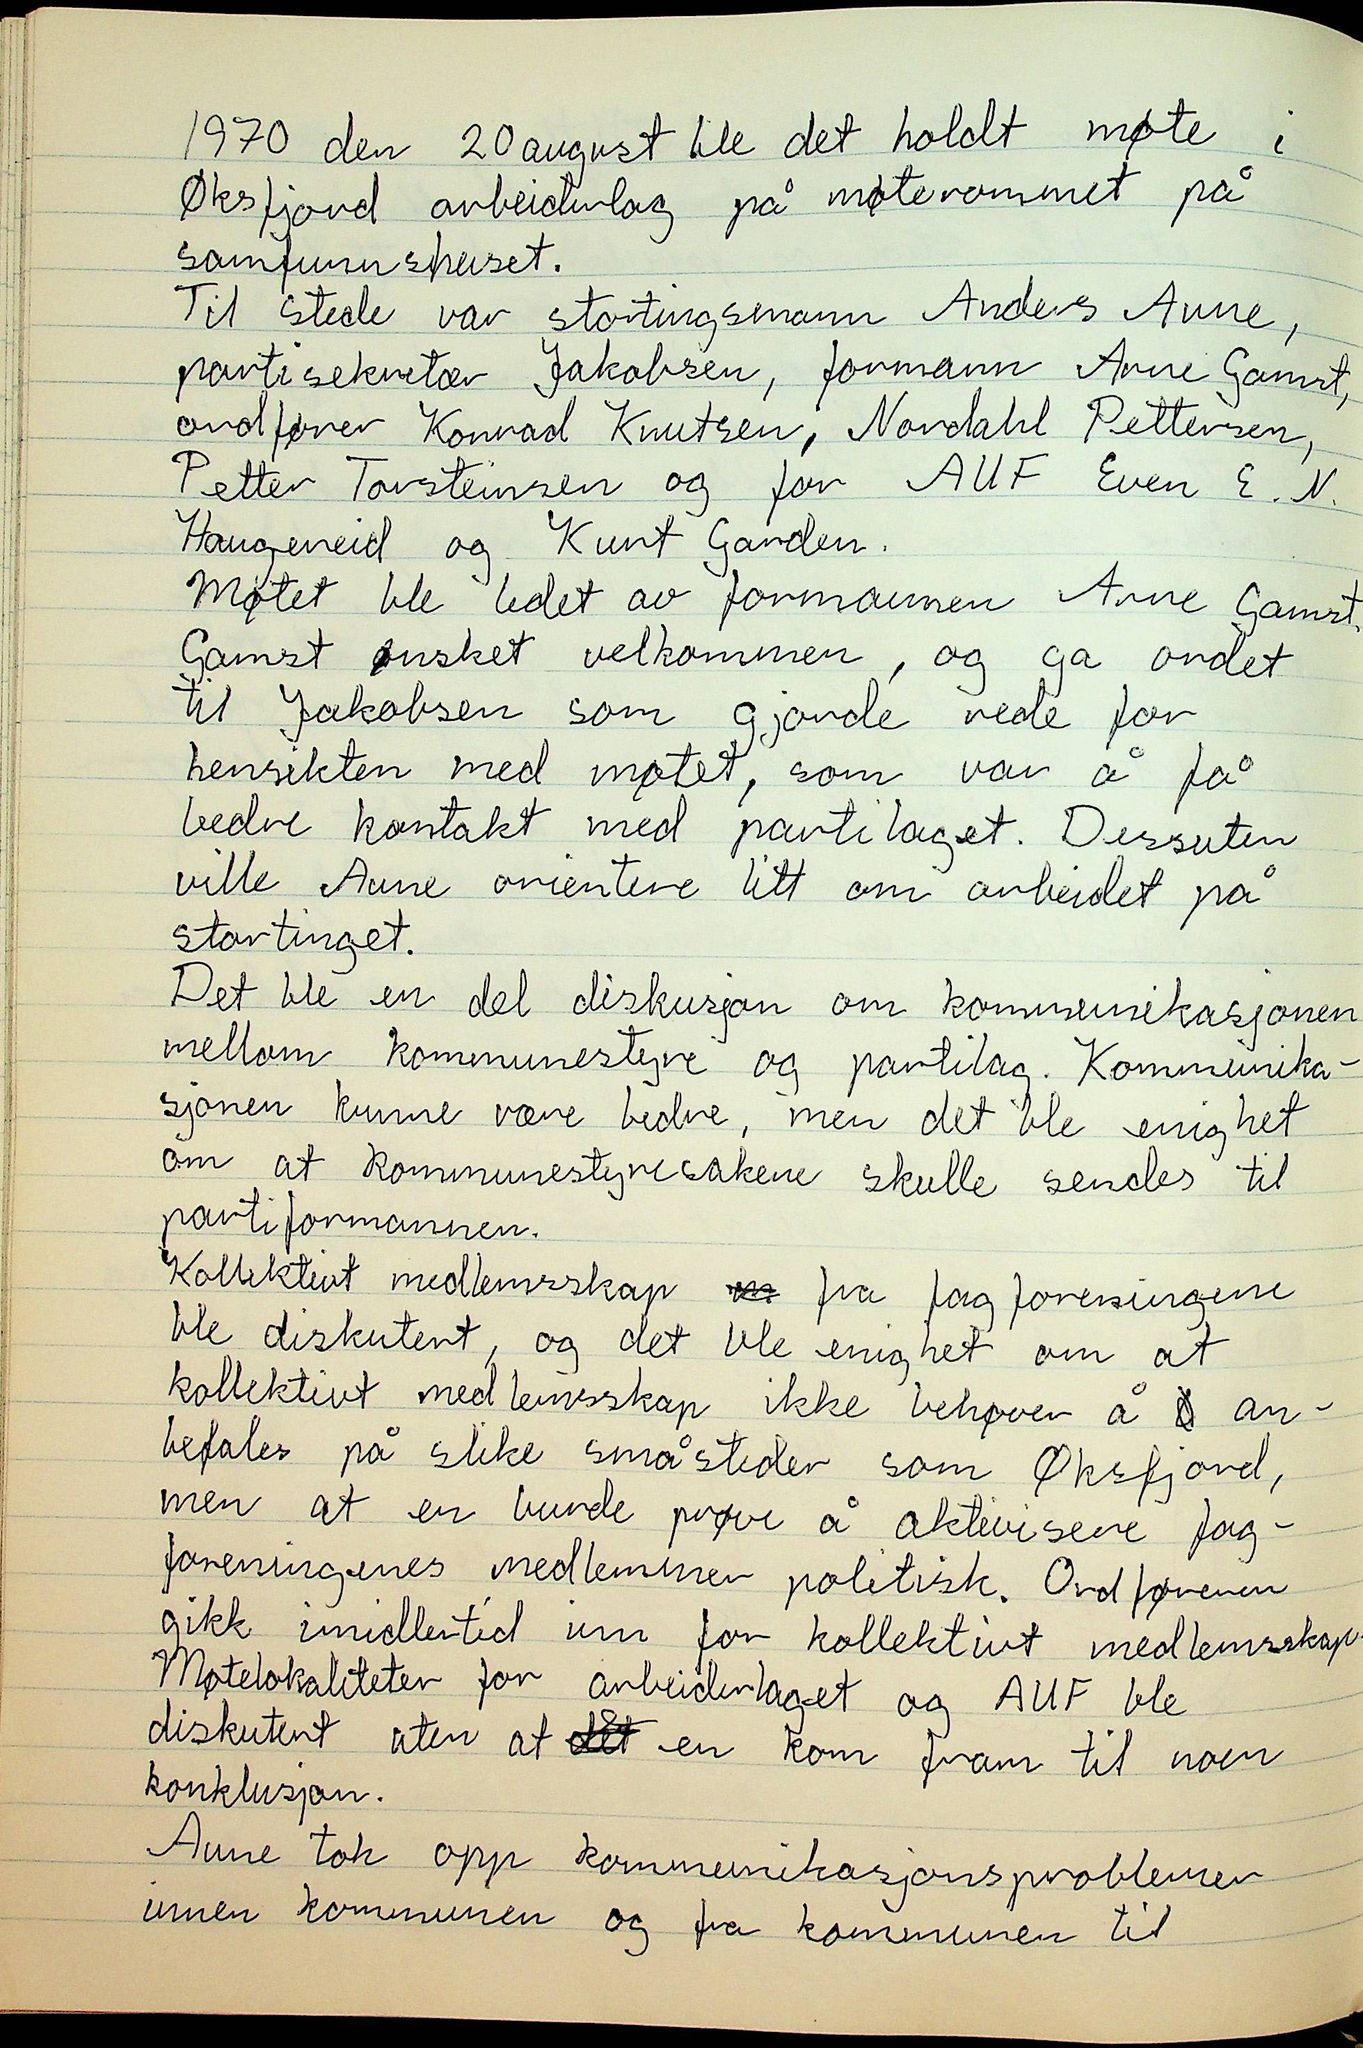 1970 den 20 august ble det holdt møte i
Øksfjord arbeiderlag på møterommet på
samfunnshuset.
Til stede var stortingsmann Anders Aune,
partisekretær Jakobsen, formann Arne Gamst,
ordfører Konrad Knutsen, Nordahl Pettersen,
Petter Torsteinsen og for AUF Even E. N.
Haugeneid og Kurt Garden.
Møtet ble ledet av formannen Arne Gamst.
Gamst ønsket velkommen, og ga ordet
til Jakobsen som gjorde rede for
hensikten med møtet, som var å få
bedre kontakt med partilaget. Dessuten
ville Aune orientere litt om arbeidet på
stortinget.
Det ble en del diskusjon om kommunikasjonen
mellom kommunestyre og partilag. Kommunika-
sjonen kunne være bedre, men det ble enighet
om at kommunestyresakene skulle sendes til
partiformannen.
Kollektivt medlemsskap fra fagforeningene
ble diskutert, og det ble enighet om at
kollektivt medlemsskap ikke behøver å an-
befales på slike småsteder som Øksfjord,
men at en burde prøve å aktivisere fag-
foreningenes medlemmer politisk. Ordføreren
gikk imidlertid inn for kollektivt medlemsskap.
Møtelokaliteter for arbeiderlaget og AUF ble
diskutert uten at det en kom fram til noen
konklusjon.
Aune tok opp kommunikasjonsproblemer
innen kommunen og fra kommunen til